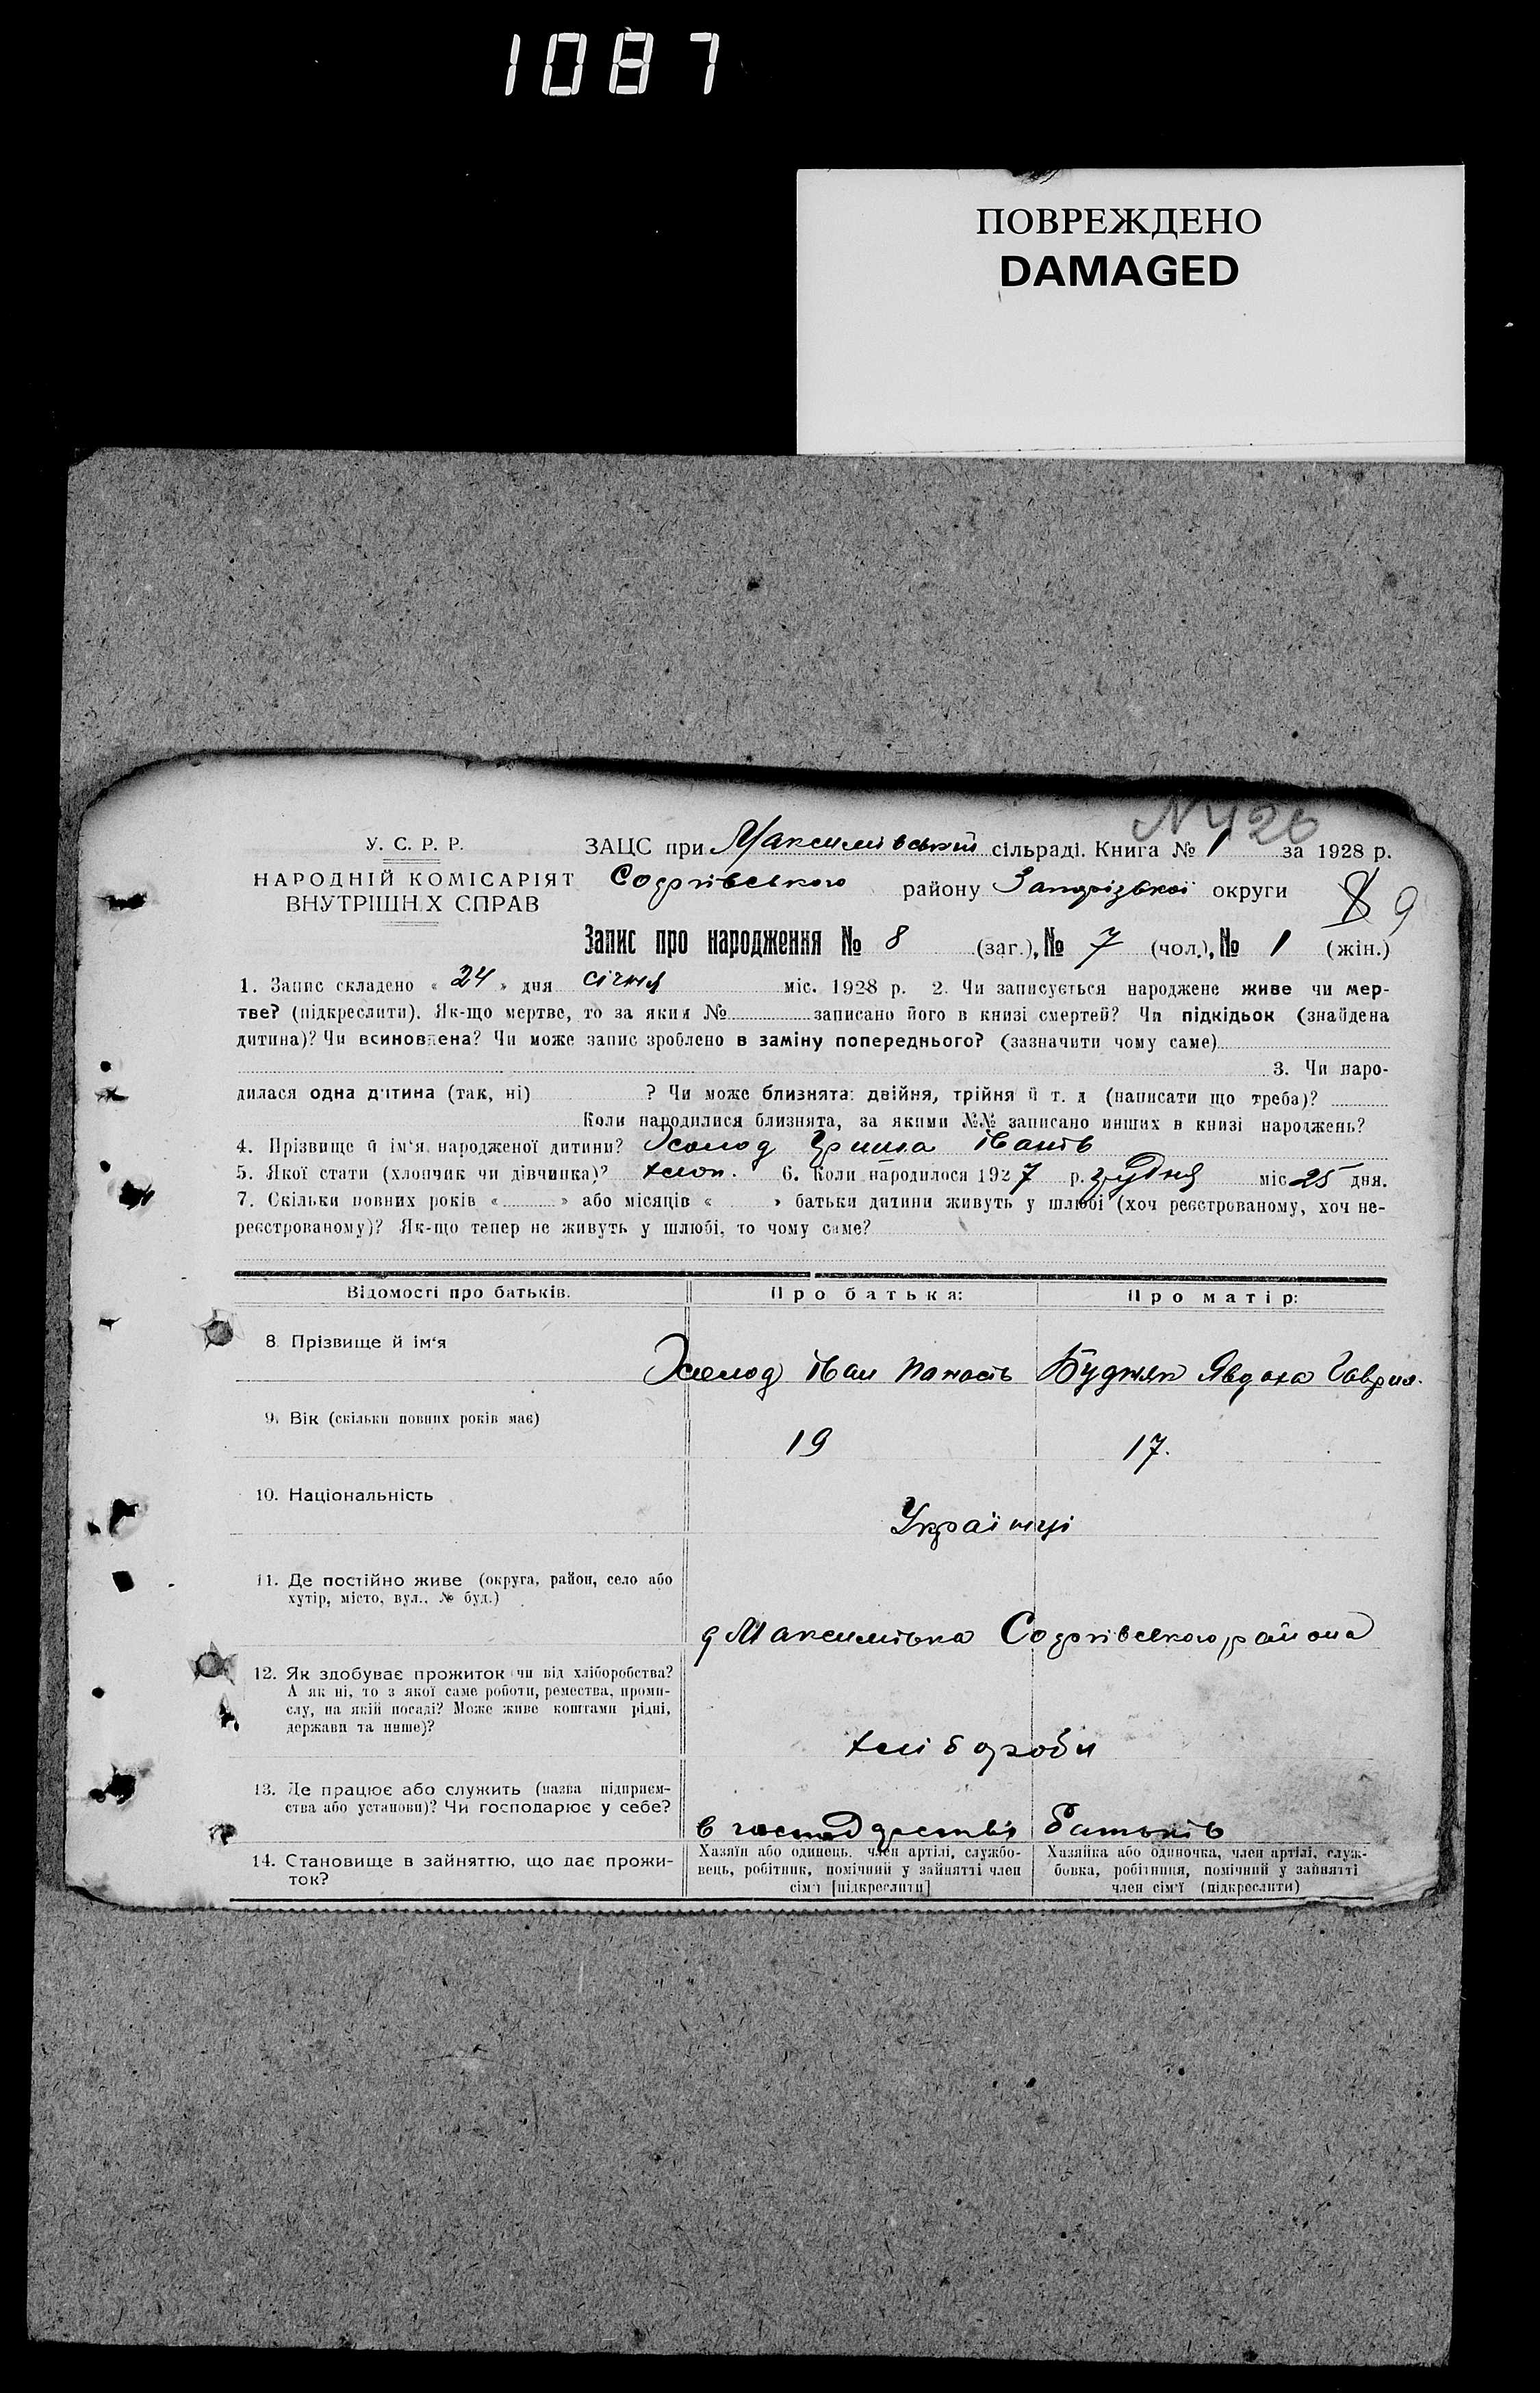 1087
ПОВРЕЖДЕНО
DAMAGED
N 426
У. С. Р. Р.
НАРОДНІЙ КОМІСАРІЯТ
ВНУТРІШН Х СПРАВ
ЗАЦС при Максимівській сільраді. Книга № 1 за 1928 р.
Софіївського району Запорізької округи
8 9
Запис про народження № 8 (заг.), № 7 (чол.), № 1 (жін.)
1. Запис складено « 24 » дня січня міс. 1928 р. 2. Чи записується народжене живе чи мер-
тве? (підкреслити). Як-що мертве, то за яким № записано його в книзі смертей? Чи підкідьок (знайдена
дитина)? Чи всиновлена? Чи може запис зроблено в заміну попереднього? (зазначити чому саме)
3. Чи наро-
дилася одна дитина (так, ні) ? Чи може близнята: двійня, трійня й т. д (написати що треба)?
Коли народилися близнята, за якими №№ записано инших в книзі народжень?
4. Прізвище й ім'я народженої дитини? Холод Гриша Іванів
5. Якої стати (хлопчик чи дівчинка)? хлоп. 6. Коли народилося 1927 р. грудня міс 25 дня.
7. Скільки повних років « » або місяців « » батьки дитини живуть у шлюбі (хоч реєстрованому, хоч не-
реєстрованому)? Як-що тепер не живуть у шлюбі, то чому саме?
Відомості про батьків. Про батька: Про матір:
8. Прізвище й ім'я
Холод Іван Буджяк Явдоха Гаврил.
9. Вік (скільки повних років має)
19 17.
10. Національність
Українці
11. Де постійно живе (округа, район, село або
хутір, місто, вул., № буд.)
Максимівка Софіївського района
12. Як здобуває прожиток чи від хліборобства?
А як ні, то з якої саме роботи, ремества, проми-
слу, на якій посаді? Може живе коштами рідні,
держави та инше)?
хлібороби
13. Де працює або служить (назва підприєм-
ства або установи)? Чи господарює у себе?
в господарстві батьків
14. Становище в зайняттю, що дає прожи-
ток?
Хазяїн або одинець, член артілі, службо-
вець, робітник, помічний у зайнятті член
сім'ї [підкреслити]
Хазяйка або одиночка, член артілі, служ-
бовка, робітниця, помічний у зайнятті
член сім'ї (підкреслити)